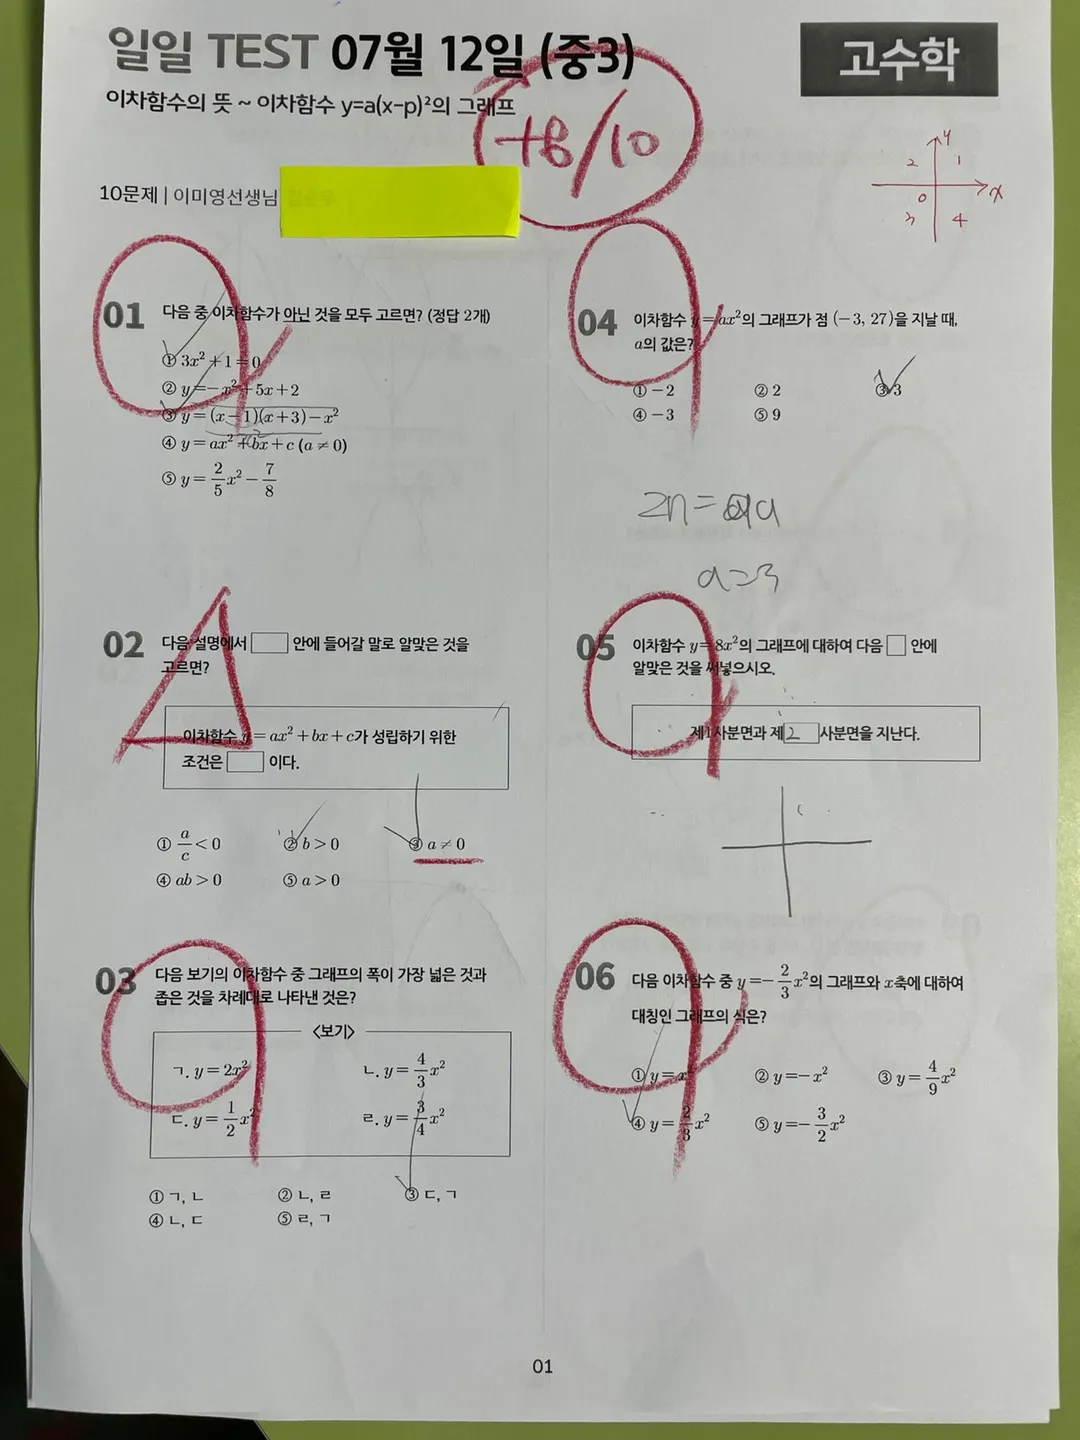 일일 TEST 07월 12일 (중3)
고수학
이차함수의 뜻 ~ 이차함수 y=a(x-p)²의 그래프
+8/10
10문제 | 이미영선생님
y
2 1
0 x
3 4
01 다음 중 이차함수가 아닌 것을 모두 고르면? (정답 2개)
① 3x²+1=0
② y=-x²+5x+2
③ y=(x-1)(x+3)-x²
④ y=ax²+bx+c (a≠0)
⑤ y=2/5x²-7/8
02 다음 설명에서 □ 안에 들어갈 말로 알맞은 것을
고르면?
이차함수 y=ax²+bx+c가 성립하기 위한
조건은 □ 이다.
① a/c<0 ② b>0 ③ a≠0
④ ab>0 ⑤ a>0
03 다음 보기의 이차함수 중 그래프의 폭이 가장 넓은 것과
좁은 것을 차례대로 나타낸 것은?
<보기>
ㄱ. y=2x² ㄴ. y=4/3x²
ㄷ. y=1/2x² ㄹ. y=3/4x²
① ㄱ, ㄴ ② ㄴ, ㄹ ③ ㄷ, ㄱ
④ ㄴ, ㄷ ⑤ ㄹ, ㄱ
04 이차함수 y=ax²의 그래프가 점 (-3, 27)을 지날 때,
a의 값은?
① -2 ② 2 ③ 3
④ -3 ⑤ 9
a=3
05 이차함수 y=8x²의 그래프에 대하여 다음 □ 안에
알맞은 것을 써넣으시오.
제1사분면과 제 2 사분면을 지난다.
06 다음 이차함수 중 y=-2/3x²의 그래프와 x축에 대하여
대칭인 그래프의 식은?
① y=x² ② y=-x² ③ y=4/9x²
④ y=2/3x² ⑤ y=-3/2x²
01